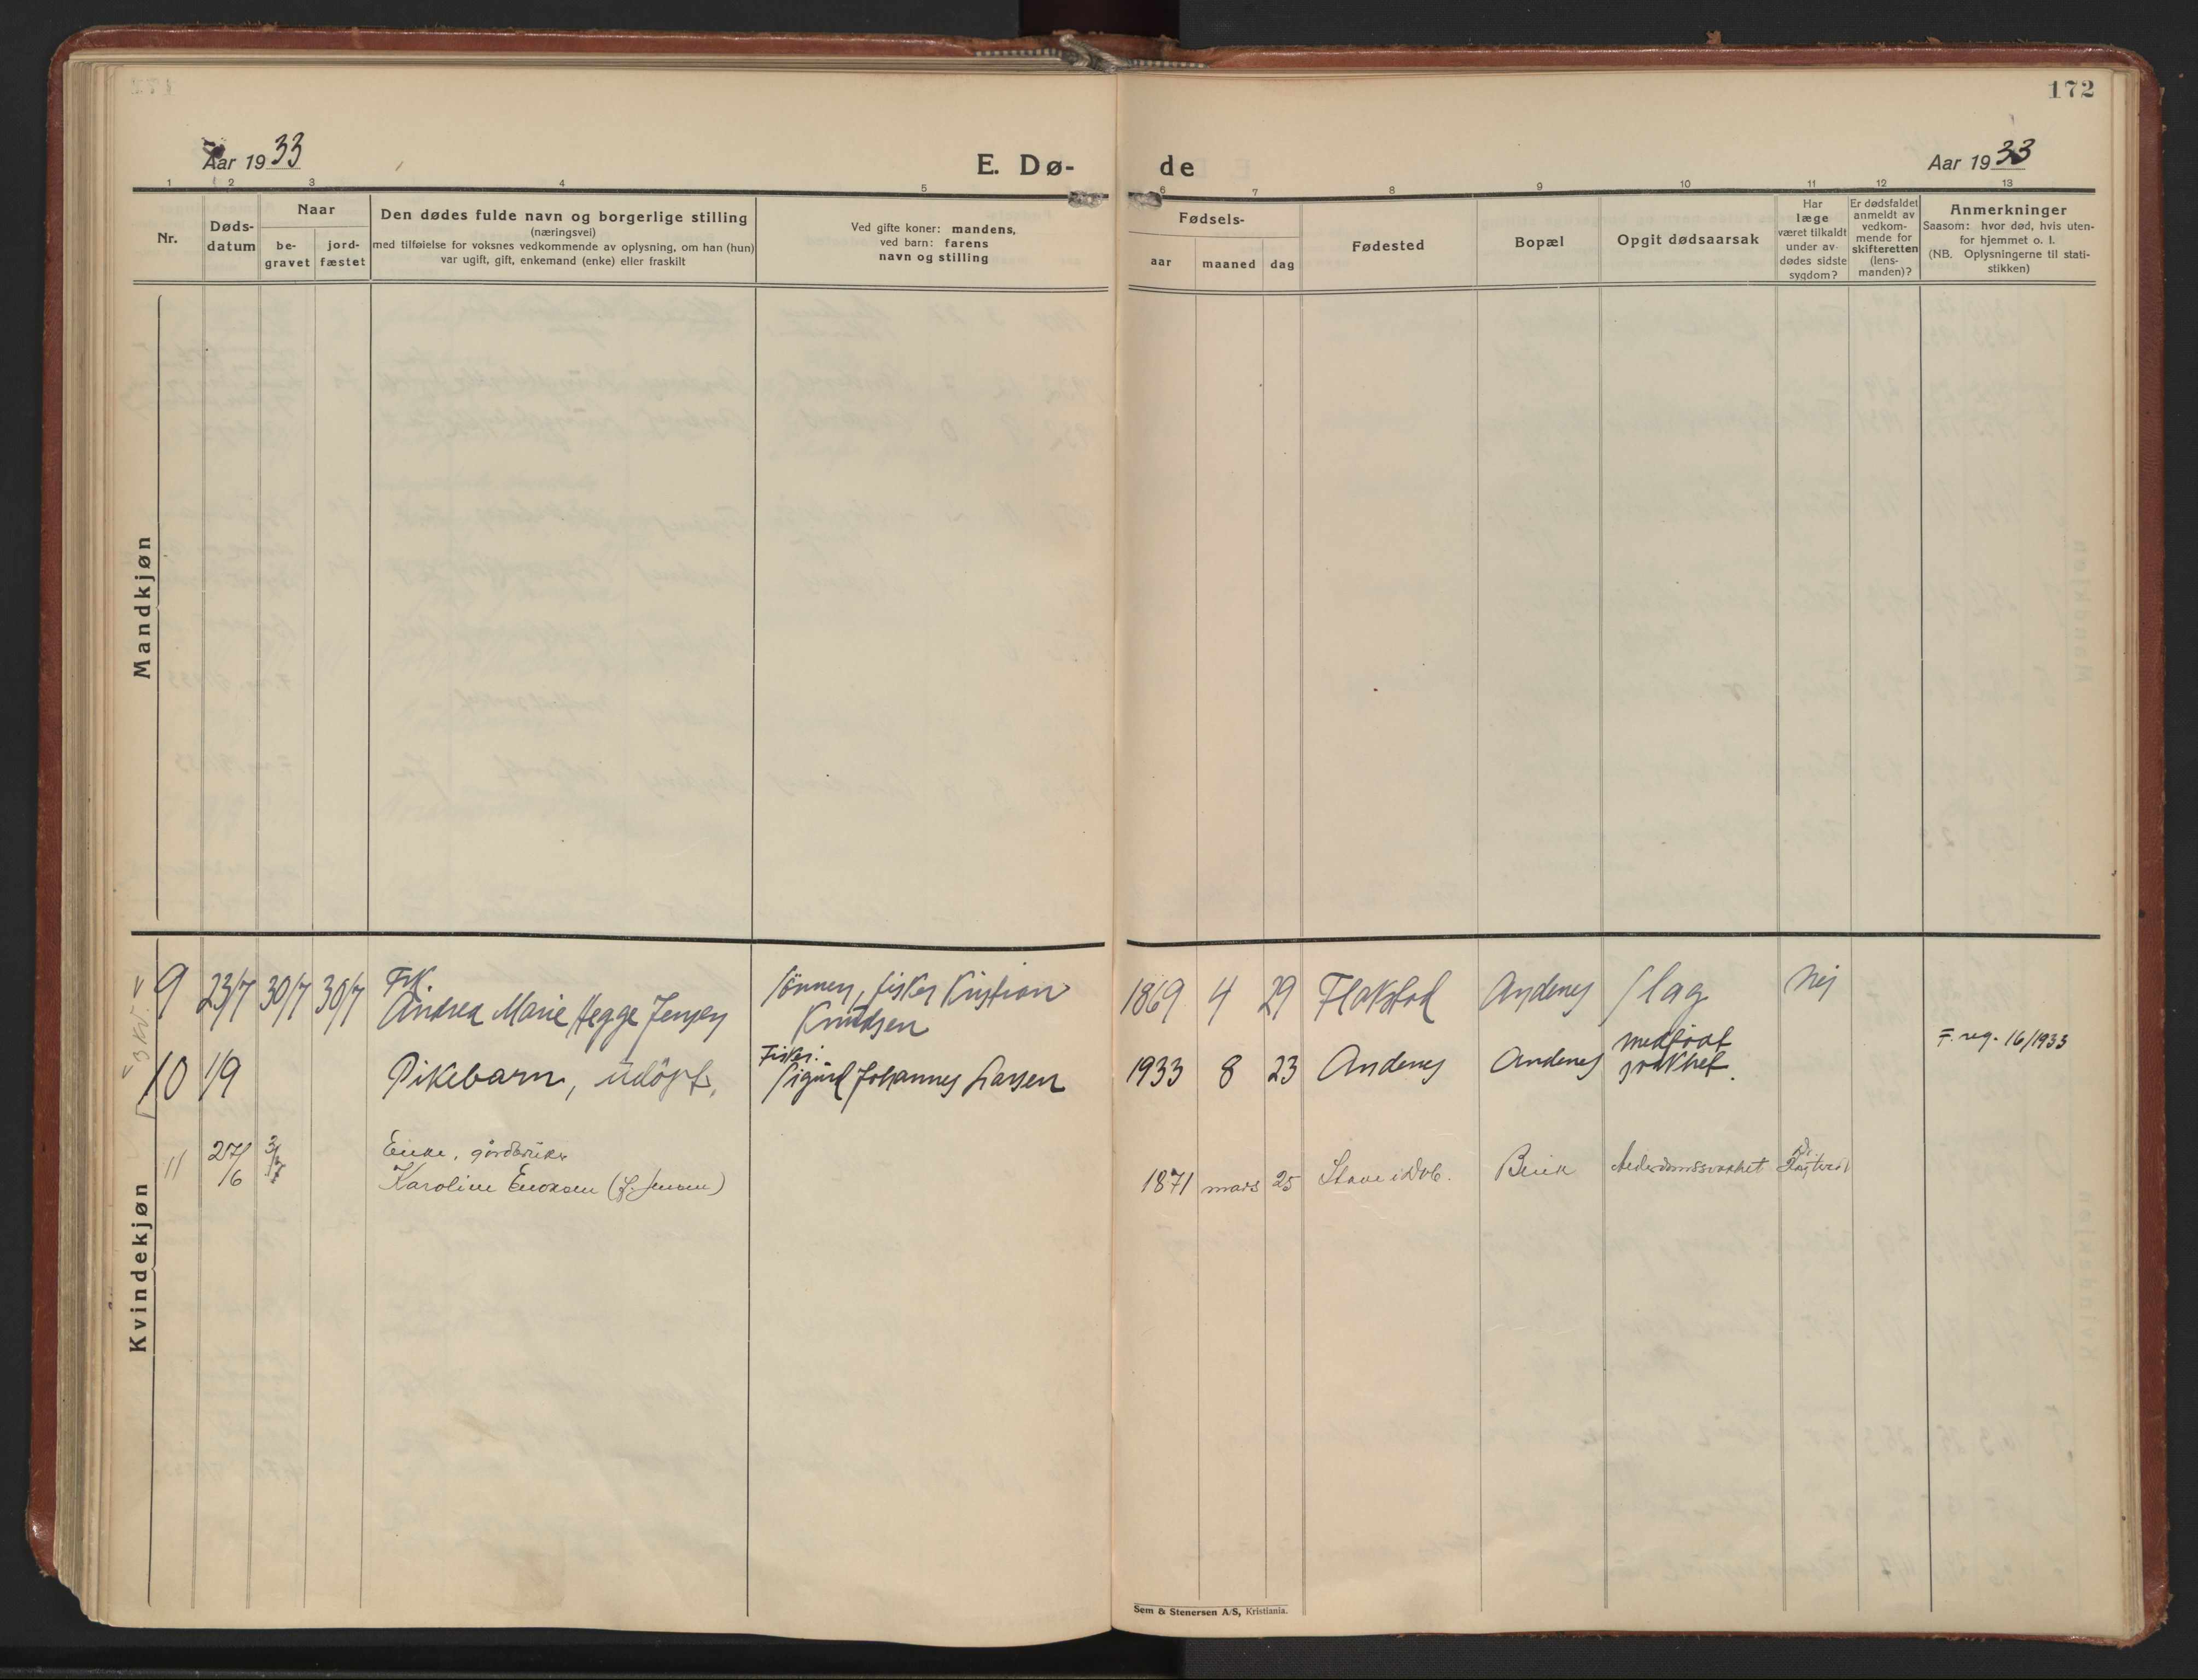 172
Aar 1933
E. Dø-
de
Aar 1933
1 2 3 4 5 6 7 8 9 10 11 12 13
Nr.
Døds-
datum
Naar
be-
gravet
jord-
fæstet
Den dødes fulde navn og borgerlige stilling
(næringsvei)
med tilføielse for voksnes vedkommende av oplysning, om han (hun)
var ugift, gift, enkemand (enke) eller fraskilt
Ved gifte koner: mandens,
ved barn: farens
navn og stilling
Fødsels-
aar
maaned
dag
Fødested
Bopæl
Opgit dødsaarsak
Har
læge
været tilkaldt
under av-
dødes sidste
sygdom?
Er dødsfaldet
anmeldt av
vedkom-
mende for
skifteretten
(lens-
manden)?
Anmerkninger
Saasom: hvor død, hvis uten-
for hjemmet o. l.
(NB. Oplysningerne til stati-
stikken)
Mandkjøn
Kvindekjøn
Frk.
9 23/7 30/7 30/7 Andrea Marie Hegge Jensen
Sönnen, fisker Kristian
Knudsen
1869 4 29 Flakstad Andenes slag Nei
10 1/9 Pikebarn, udöpt.
Fisker.
Sigurd Johannes Larsen
1933 8 23 Andenes Andenes
medfödt
svakhet.
F. reg. 16/1933
11 27/6 3/7
Enke, gårdbruker
Karoline Enoksen (f. Jensen)
1871 mars 25 Stave i Dvb. Bleik Alderdomssvakhet
Sem & Stenersen A/S, Kristiania.